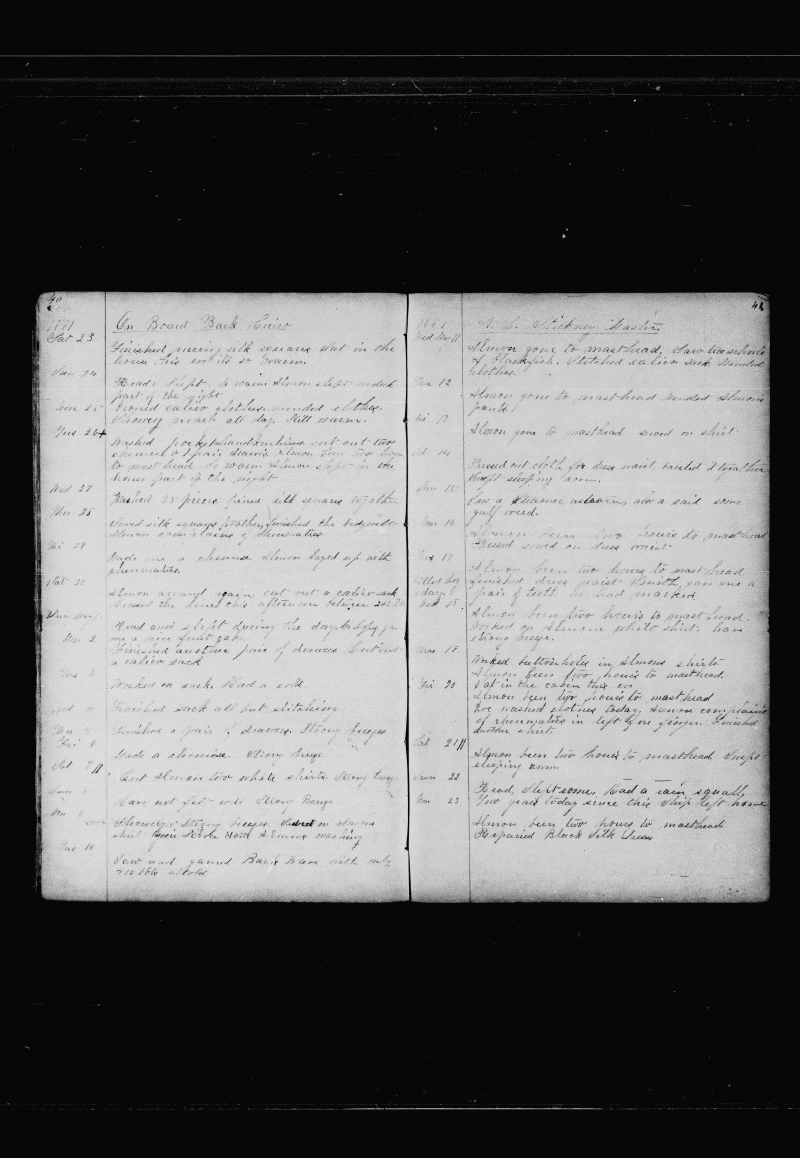 40
1881
On Board Bark Cicero
Sat 23
Finished piecing silk squares sat in the
house this eve its so warm.
Sun 24
Read & slept. So warm Almon slept on deck
part of the night
Mon 25
Ironed calico clothes, mended clothes.
Showery nearly all day. Still warm.
Tues 26
Washed pockethandkerchiefs cut out two
chemise & 1 pair drawers Almon been two hours
to mast head. So warm Almon slept in the
house part of the night
Wed 27
Washed 25 pieces joined silk squares together
Thur 28
Sewed silk squares together, finished the bedquilt
Almon complains of rheumatics
Fri 29
Made me a chemise Almon layed up with
rheumatics.
Sat 30
Almon around again cut out a calico sack
crossed the line this afternoon between 2 &
Sun May 1
Read and slept during the day.
me a nice quit
Mon 2
Finished another pair of drawers Cut out
a calico sack
Tues 3
Worked on sack. Had a cold.
Wed 4
Finished sack all but stitching
Thu 5
Finished a pair of drawers. Strong breezes
Fri 6
Made a chemise. Strong breeze
Sat 7
Cut Almon two white shirts Strong breeze
Sun 8
Have not felt well Strong Breeze
Mon 9
Showery & Strong breezes. Sewed on Almons
shirt Almons washing
Tues 10
Saw and gamed Bark Wave with only
210 bbls all told
41
1881
A. L. Stickney Master
Wed May 11
Almon gone to masthead. Saw two schools
of Blackfish. Stitched calico sack. Mended
clothes.
Thu 12
Almon gone to mast head mended Almon's
pants
Fri 13
Almon gone to masthead sewed on shirt
Sat 14
Pieced out cloth for dress waist basted it together
Swept sleeping room.
Sun 15
Saw a steamer astern, also a sail some
gulf weed.
Mon 16
Almon been two hours to masthead
Pressed sewed on dress waist
Tues 17
Almon been two hours to mast head
finished dress waist Smith, gave me a
pair of teeth he had marked
Wed 18
Almon been two hours to mast head.
Worked on Almons white shirt. have
strong breeze.
Thurs 19
Worked buttonholes in Almons shirts
Almon been two hours to masthead.
Sat in the cabin this eve
Fri 20
Almon been two hours to mast head
Ive washed clothes today, Almon complains
of rheumatics in left fore finger. Finished
another shirt.
Sat 21
Almon been two hours to masthead Swept
sleeping room
Sun 22
Read, Slept some, had a rain squall,
Mon 23
Two years today since this Ship left home
Almon been two hours to masthead
Repaired Black Silk Dress